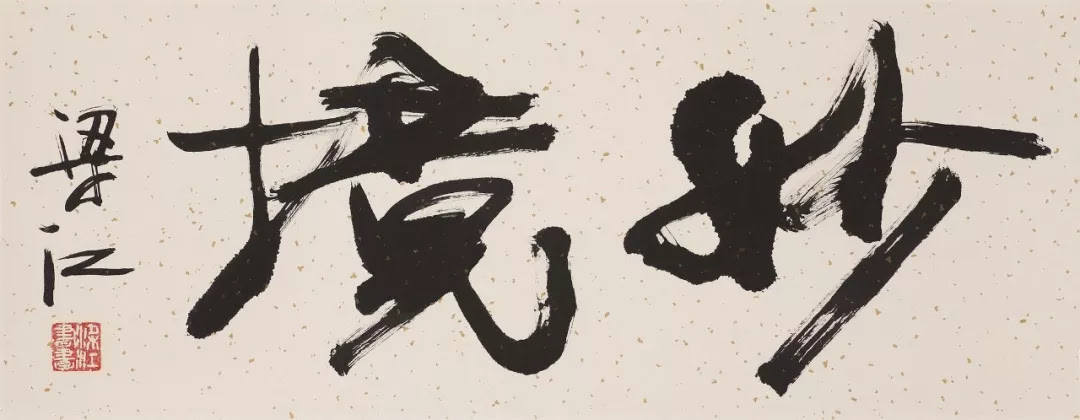 妙境
梁江
梁江書畫